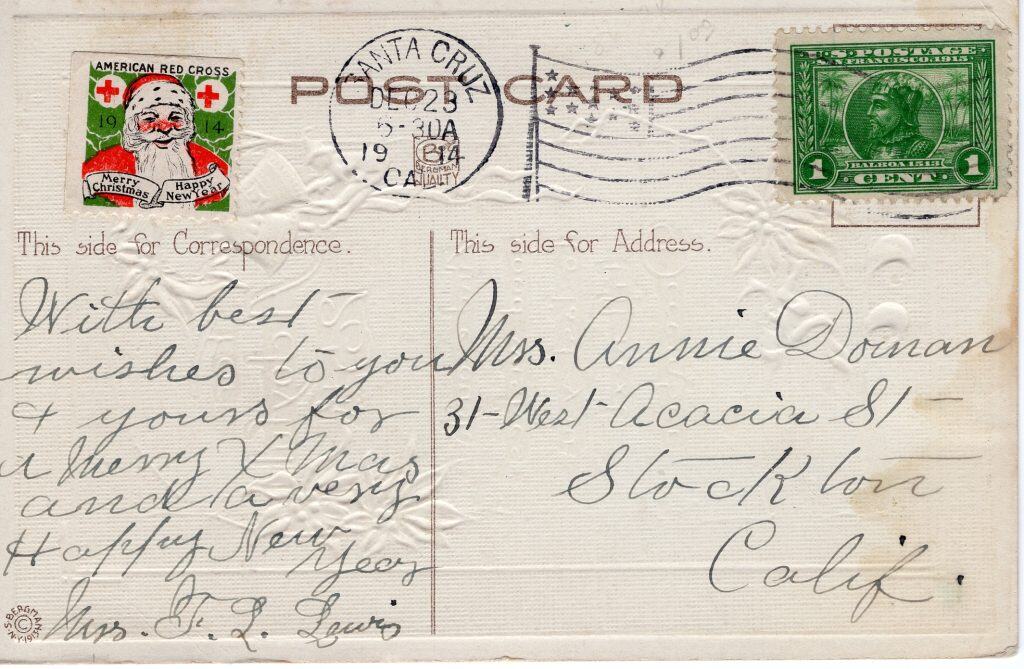 AMERICAN RED CROSS
19 14
Merry Christmas
Happy New Year
POST CARD
SANTA CRUZ
DEC 23
5-30A
1914
CAL
BERGMAN
QUALITY
U.S. POSTAGE
SAN FRANCISCO, 1915
BALBOA 1513
1 CENT 1
This side for Correspondence.
With best
wishes to you
& yours for
a Merry X Mas
and a very
Happy New
Year
Mrs. F. L. Lewis
This side for Address.
Mrs. Annie Doman
31-West Acacia St
Stockton
Calif.
© S. BERGMAN N.Y. 1913